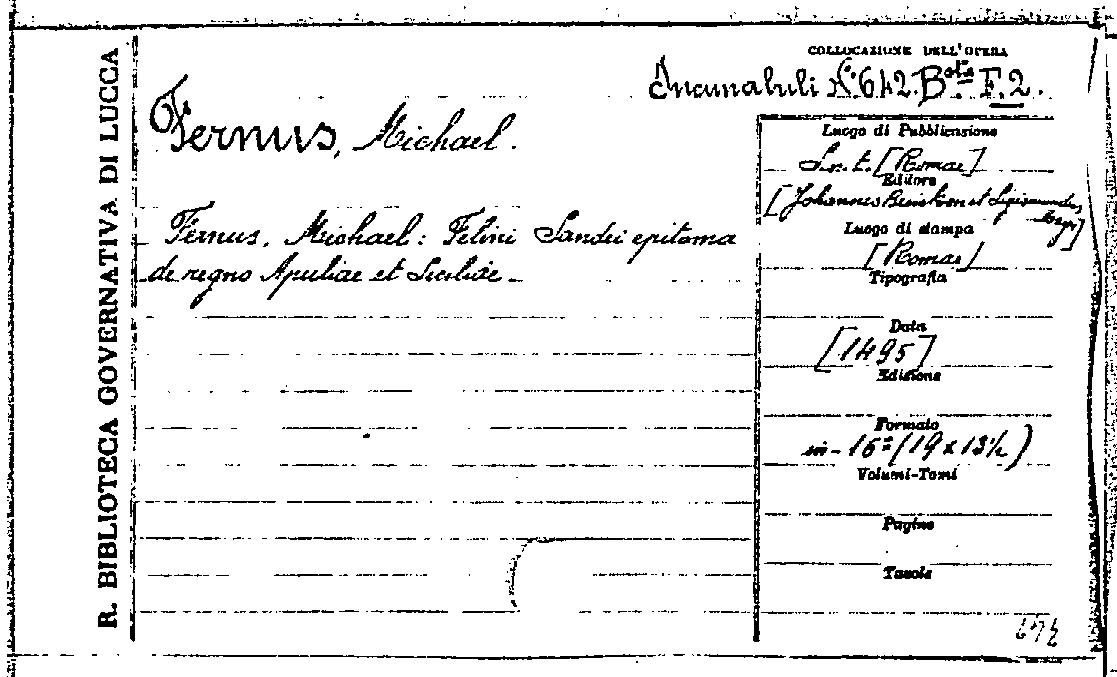 R. BIBLIOTECA GOVERNATIVA DI LUCCA
COLLOCAZIONE DELL'OPERA
Incunabuli N.º 642. Bsta F. 2.
Fernus, Michael.
Fernus, Michael: Felini Sandei epitoma
de regno Apuliae et Siciliae -
Luogo di Pubblicazione
S. n. t. [Romae]
Editore
[Johannes et Sigismundus
Luogo di stampa
[Romae]
Tipografia
Data
[1495]
Edizione
Formato
in-16º (19 x 13½)
Volumi-Tomi
Pagine
Tavole